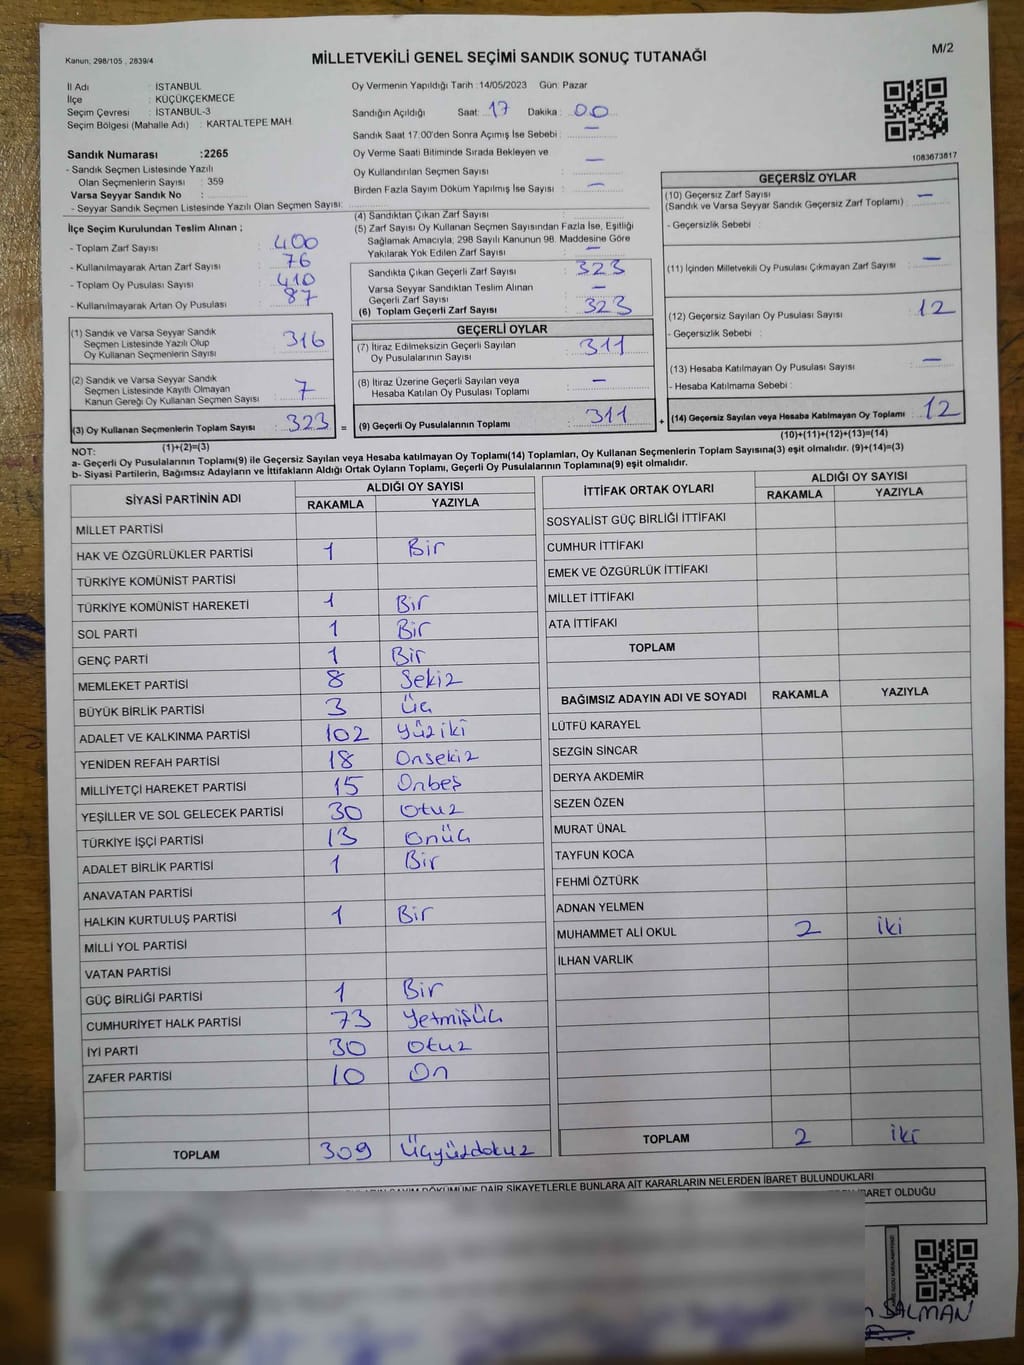 Kanun: 298/105 , 2839/4
MİLLETVEKİLİ GENEL SEÇİMİ SANDIK SONUÇ TUTANAĞI
M/2
İl Adı : İSTANBUL
İlçe : KÜÇÜKÇEKMECE
Seçim Çevresi : İSTANBUL-3
Seçim Bölgesi (Mahalle Adı) : KARTALTEPE MAH.
Sandık Numarası :2265
- Sandık Seçmen Listesinde Yazılı
Olan Seçmenlerin Sayısı : 359
Varsa Seyyar Sandık No :
- Seyyar Sandık Seçmen Listesinde Yazılı Olan Seçmen Sayısı:
Oy Vermenin Yapıldığı Tarih :14/05/2023 Gün: Pazar
Sandığın Açıldığı Saat: 17 Dakika: 00
Sandık Saat 17:00'den Sonra Açımış İse Sebebi : —
Oy Verme Saati Bitiminde Sırada Bekleyen ve
Oy Kullandırılan Seçmen Sayısı : —
Birden Fazla Sayım Döküm Yapılmış İse Sayısı : —
1083673817
İlçe Seçim Kurulundan Teslim Alınan ;
- Toplam Zarf Sayısı : 400
- Kullanılmayarak Artan Zarf Sayısı : 76
- Toplam Oy Pusulası Sayısı : 410
- Kullanılmayarak Artan Oy Pusulası : 87
(1) Sandık ve Varsa Seyyar Sandık
Seçmen Listesinde Yazılı Olup
Oy Kullanan Seçmenlerin Sayısı : 316
(2) Sandık ve Varsa Seyyar Sandık
Seçmen Listesinde Kayıtlı Olmayan
Kanun Gereği Oy Kullanan Seçmen Sayısı : 7
(3) Oy Kullanan Seçmenlerin Toplam Sayısı : 323 =
(1)+(2)=(3)
(4) Sandıktan Çıkan Zarf Sayısı :
(5) Zarf Sayısı Oy Kullanan Seçmen Sayısından Fazla İse, Eşitliği
Sağlamak Amacıyla, 298 Sayılı Kanunun 98. Maddesine Göre
Yakılarak Yok Edilen Zarf Sayısı : —
Sandıkta Çıkan Geçerli Zarf Sayısı : 323
Varsa Seyyar Sandıktan Teslim Alınan
Geçerli Zarf Sayısı : —
(6) Toplam Geçerli Zarf Sayısı : 323
GEÇERLİ OYLAR
(7) İtiraz Edilmeksizin Geçerli Sayılan
Oy Pusulalarının Sayısı : 311
(8) İtiraz Üzerine Geçerli Sayılan veya
Hesaba Katılan Oy Pusulası Toplamı : —
(9) Geçerli Oy Pusulalarının Toplamı : 311 +
GEÇERSİZ OYLAR
(10) Geçersiz Zarf Sayısı : —
(Sandık ve Varsa Seyyar Sandık Geçersiz Zarf Toplamı)
- Geçersizlik Sebebi :
(11) İçinden Milletvekili Oy Pusulası Çıkmayan Zarf Sayısı : —
(12) Geçersiz Sayılan Oy Pusulası Sayısı : 12
- Geçersizlik Sebebi :
(13) Hesaba Katılmayan Oy Pusulası Sayısı : —
- Hesaba Katılmama Sebebi :
(14) Geçersiz Sayılan veya Hesaba Katılmayan Oy Toplamı : 12
(10)+(11)+(12)+(13)=(14)
NOT:
a- Geçerli Oy Pusulalarının Toplamı(9) ile Geçersiz Sayılan veya Hesaba katılmayan Oy Toplamı(14) Toplamları, Oy Kullanan Seçmenlerin Toplam Sayısına(3) eşit olmalıdır. (9)+(14)=(3)
b- Siyasi Partilerin, Bağımsız Adayların ve İttifakların Aldığı Ortak Oyların Toplamı, Geçerli Oy Pusulalarının Toplamına(9) eşit olmalıdır.
SİYASİ PARTİNİN ADI ALDIĞI OY SAYISI
RAKAMLA YAZIYLA
MİLLET PARTİSİ
HAK VE ÖZGÜRLÜKLER PARTİSİ 1 Bir
TÜRKİYE KOMÜNİST PARTİSİ
TÜRKİYE KOMÜNİST HAREKETİ 1 Bir
SOL PARTİ 1 Bir
GENÇ PARTİ 1 Bir
MEMLEKET PARTİSİ 8 Sekiz
BÜYÜK BİRLİK PARTİSİ 3 Üç
ADALET VE KALKINMA PARTİSİ 102 Yüziki
YENİDEN REFAH PARTİSİ 18 Onsekiz
MİLLİYETÇİ HAREKET PARTİSİ 15 Onbeş
YEŞİLLER VE SOL GELECEK PARTİSİ 30 Otuz
TÜRKİYE İŞÇİ PARTİSİ 13 Onüç
ADALET BİRLİK PARTİSİ 1 Bir
ANAVATAN PARTİSİ
HALKIN KURTULUŞ PARTİSİ 1 Bir
MİLLİ YOL PARTİSİ
VATAN PARTİSİ
GÜÇ BİRLİĞİ PARTİSİ 1 Bir
CUMHURİYET HALK PARTİSİ 73 Yetmişüç
İYİ PARTİ 30 Otuz
ZAFER PARTİSİ 10 On
TOPLAM 309 Üçyüzdokuz
İTTİFAK ORTAK OYLARI ALDIĞI OY SAYISI
RAKAMLA YAZIYLA
SOSYALİST GÜÇ BİRLİĞİ İTTİFAKI
CUMHUR İTTİFAKI
EMEK VE ÖZGÜRLÜK İTTİFAKI
MİLLET İTTİFAKI
ATA İTTİFAKI
TOPLAM
BAĞIMSIZ ADAYIN ADI VE SOYADI RAKAMLA YAZIYLA
LÜTFÜ KARAYEL
SEZGİN SİNCAR
DERYA AKDEMİR
SEZEN ÖZEN
MURAT ÜNAL
TAYFUN KOCA
FEHMİ ÖZTÜRK
ADNAN YELMEN
MUHAMMET ALİ OKUL 2 iki
İLHAN VARLIK
TOPLAM 2 iki
DÖKÜMÜNE DAİR ŞİKAYETLERLE BUNLARA AİT KARARLARIN NELERDEN İBARET BULUNDUKLARI
İBARET OLDUĞU
SALMAN